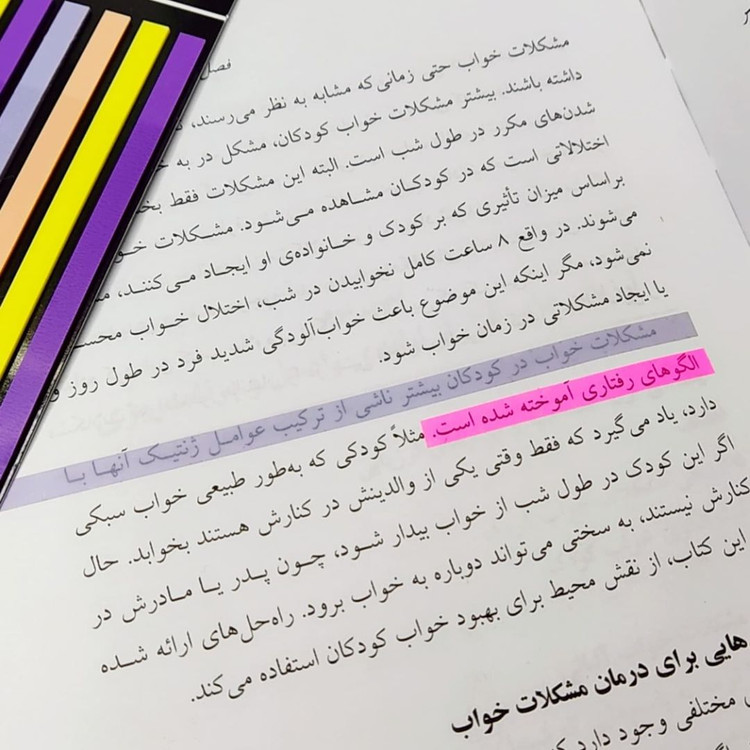 فصل
مشکلات خواب حتی زمانی که مشابه به نظر می‌رسند،
داشته باشند. بیشتر مشکلات خواب کودکان، مشکل در به
شدن‌های مکرر در طول شب است. البته این مشکلات فقط
اختلالاتی است که در کودکان مشاهده می‌شود. مشکلات
براساس میزان تأثیری که بر کودک و خانواده‌ی او ایجاد می‌کنند،
می‌شوند. در واقع ۸ ساعت کامل نخوابیدن در شب، اختلال خواب
نمی‌شود، مگر اینکه این موضوع باعث خواب‌آلودگی شدید فرد در طول روز و
یا ایجاد مشکلاتی در زمان خواب شود.
مشکلات خواب در کودکان بیشتر ناشی از ترکیب عوامل ژنتیک آنها با
الگوهای رفتاری آموخته شده است. مثلاً کودکی که به‌طور طبیعی خواب سبکی
دارد، یاد می‌گیرد که فقط وقتی یکی از والدینش در کنارش هستند بخوابد. حال
اگر این کودک در طول شب از خواب بیدار شود، چون پدر یا مادرش در
کنارش نیستند، به سختی می‌تواند دوباره به خواب برود. راه‌حل‌های ارائه شده
این کتاب، از نقش محیط برای بهبود خواب کودکان استفاده می‌کند.
هایی برای درمان مشکلات خواب
مختلفی وجود دارد